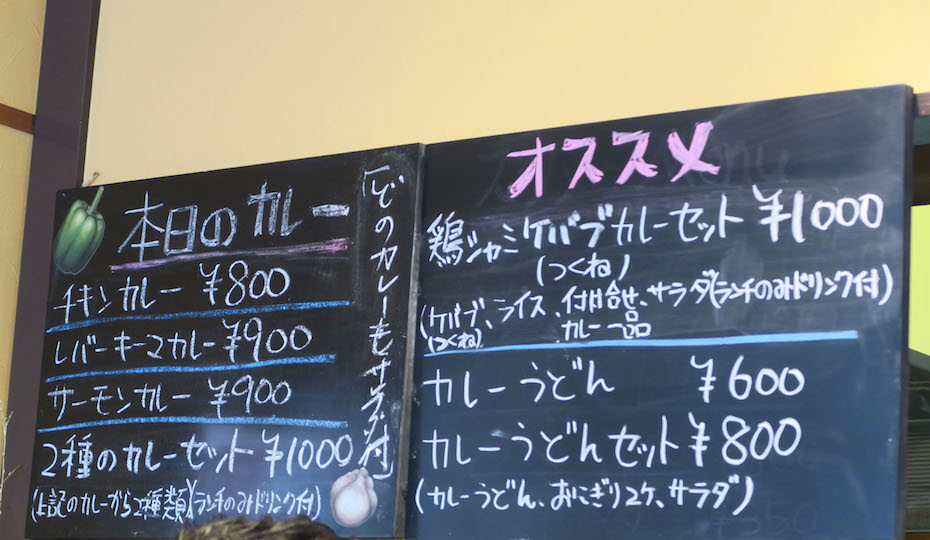 本日のカレー
チキンカレー ¥800
レバーキーマカレー ¥900
サーモンカレー ¥900
2種のカレーセット ¥1000
(上記のカレーから2種類)(ランチのみドリンク付)
どのカレーもサラダ付
オススメ
鶏シャミケバブカレーセット ¥1000
(つくね)
(ケバブ、ライス、付合せ、サラダ(ランチのみドリンク付)
(つくね) カレー一品
カレーうどん ¥600
カレーうどんセット ¥800
(カレーうどん、おにぎり2ケ、サラダ)